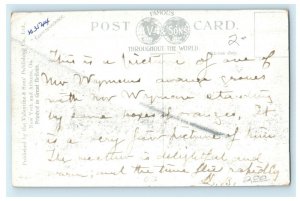 FAMOUS
POST CARD.
V&SONS
THROUGHOUT THE WORLD
2-
This is a picture of one of
Mr Wymans orange groves
with Mr Wyman standing
by some boxes of oranges. It
is a very fair picture of him
The weather is delightful and
warm and the time flies rapidly